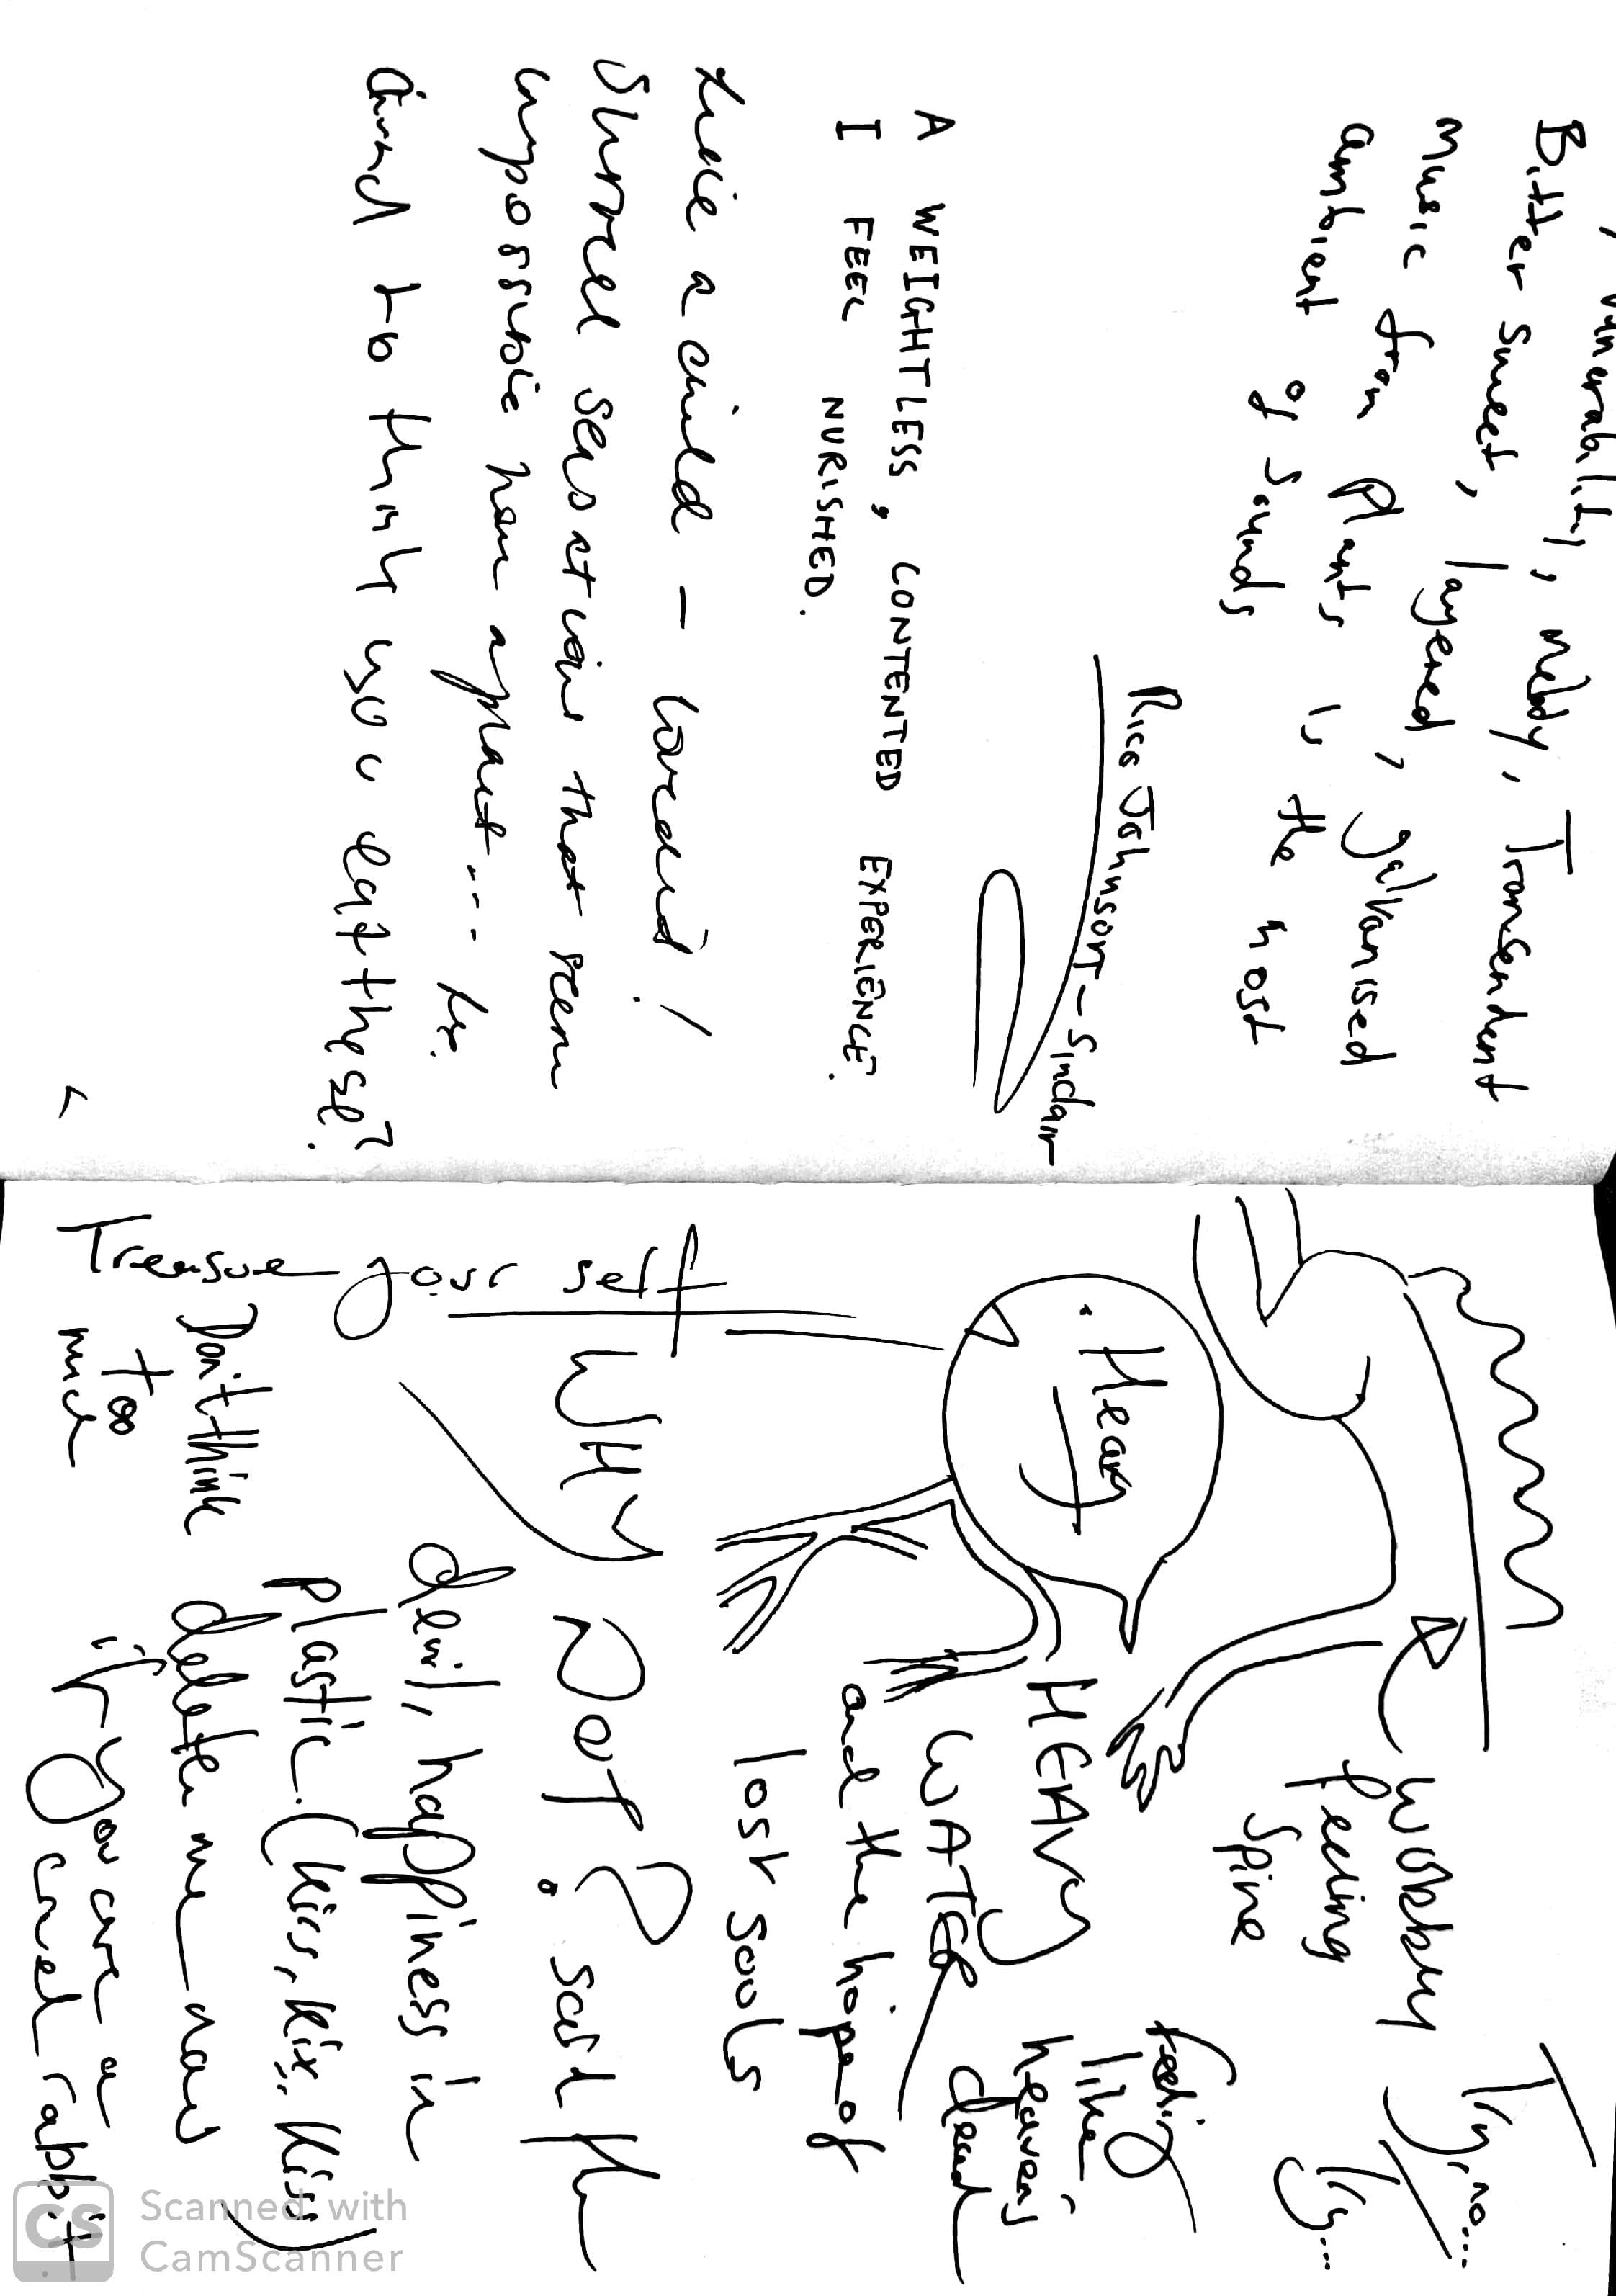 Vunerability, Melody, Transendent
Bitter Sweet, layered, galvanised
Music from Plants is the most
ambient of sounds
Rico Johnson-Sinclair
A WEIGHTLESS, CONTENTED EXPERIENCE.
I FEEL NURISHED.
like a child -
Surreal sensation that seem
impossible from a plant...
and to think you eat these?
Try, no...
Try...
Wobbly
feeling
Spine
feeling
like
heaven,
Heavy
HEAVY
WATER
and the hope of
lost souls
Treasure your self
WHY Not? said the
devil, happiness in
plastic. (kiss, kix, kiss)
Don't think
too
much
delete me now
if you are a
cruel rabbit
CS Scanned with
CamScanner